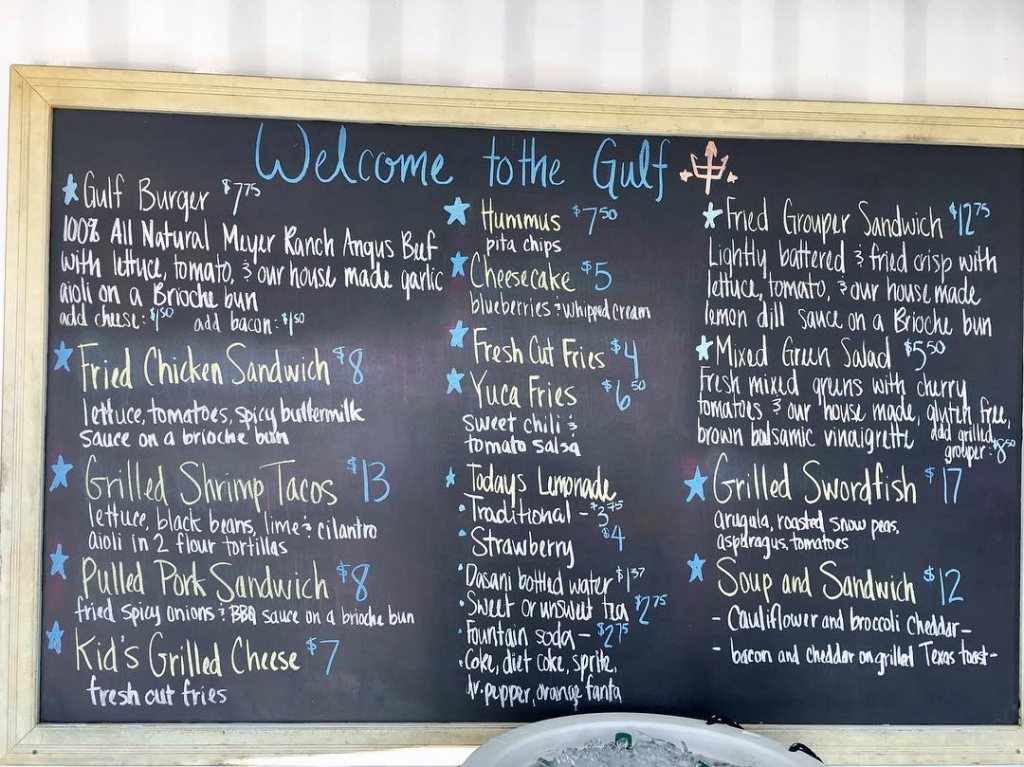 Welcome to the Gulf
Gulf Burger $7.75
100% All Natural Meyer Ranch Angus Beef
with lettuce, tomato, & our house made garlic
aioli on a Brioche bun
add cheese: $1.50 add bacon: $1.50
Fried Chicken Sandwich $8
lettuce, tomatoes, spicy buttermilk
sauce on a brioche bun
Grilled Shrimp Tacos $13
lettuce, black beans, lime & cilantro
aioli in 2 flour tortillas
Pulled Pork Sandwich $8
fried spicy onions & BBQ sauce on a brioche bun
Kid's Grilled Cheese $7
fresh cut fries
Hummus $7.50
pita chips
Cheesecake $5
blueberries & whipped cream
Fresh Cut Fries $4
Yuca Fries $6.50
sweet chili &
tomato salsa
Todays Lemonade
Traditional - $3.75
Strawberry $4
Dasani bottled water $1.37
Sweet or unsweet tea $2.75
Fountain soda - $2.75
Coke, diet coke, sprite,
dr. pepper, orange fanta
Fried Grouper Sandwich $12.75
Lightly battered & fried crisp with
lettuce, tomato, & our house made
lemon dill sauce on a Brioche bun
Mixed Green Salad $5.50
Fresh mixed greens with cherry
tomatoes & our house made, gluten free,
brown balsamic vinaigrette add grilled
grouper: $8.50
Grilled Swordfish $17
arugula, roasted snow peas,
aspdragus, tomatoes
Soup and Sandwich $12
- Cauliflower and broccoli cheddar -
- bacon and cheddar on grilled Texas toast -